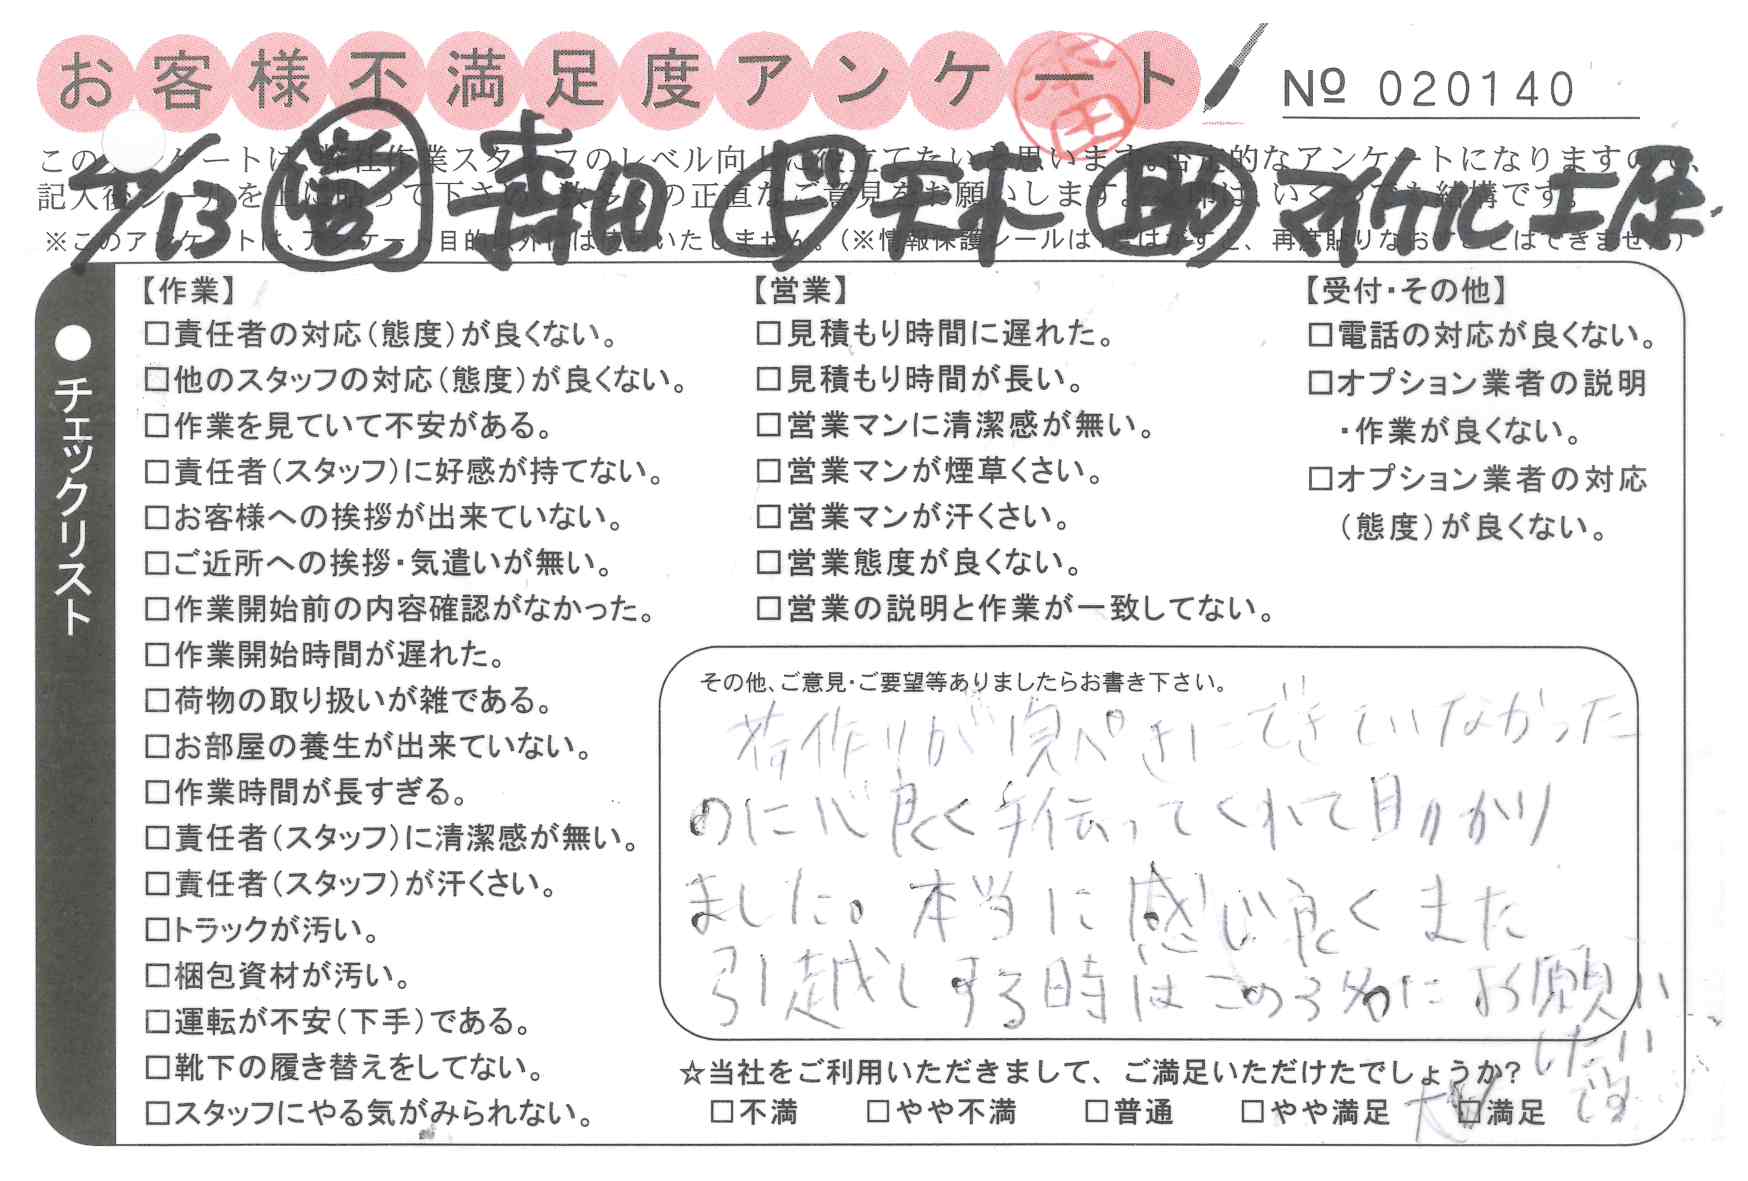 お客様不満足度アンケート
№ 020140
このアンケートは、弊社作業スタッフのレベル向上に役立てたいと思います。否定的なアンケートになりますので、
記入後シールを上に貼って下さい。数多くの正直なご意見をお願いします。
※このアンケートは、アンケート目的以外には使用いたしません。(※情報保護シールは1度はがすと、再度貼りなおすことはできません)
/13 営 森田 ド 助 マイケル 工藤
●チェックリスト
【作業】
□責任者の対応(態度)が良くない。
□他のスタッフの対応(態度)が良くない。
□作業を見ていて不安がある。
□責任者(スタッフ)に好感が持てない。
□お客様への挨拶が出来ていない。
□ご近所への挨拶・気遣いが無い。
□作業開始前の内容確認がなかった。
□作業開始時間が遅れた。
□荷物の取り扱いが雑である。
□お部屋の養生が出来ていない。
□作業時間が長すぎる。
□責任者(スタッフ)に清潔感が無い。
□責任者(スタッフ)が汗くさい。
□トラックが汚い。
□梱包資材が汚い。
□運転が不安(下手)である。
□靴下の履き替えをしてない。
□スタッフにやる気がみられない。
【営業】
□見積もり時間に遅れた。
□見積もり時間が長い。
□営業マンに清潔感が無い。
□営業マンが煙草くさい。
□営業マンが汗くさい。
□営業態度が良くない。
□営業の説明と作業が一致してない。
【受付・その他】
□電話の対応が良くない。
□オプション業者の説明
・作業が良くない。
□オプション業者の対応
(態度)が良くない。
その他、ご意見・ご要望等ありましたらお書き下さい。
荷作りが完ぺきにできていなかった
のに心良く手伝ってくれて助かり
ました。本当に感じ良くまた
引越しする時はこの3名にお願い
したい
です
☆当社をご利用いただきまして、ご満足いただけたでしょうか?
□不満 □やや不満 □普通 □やや満足 大 □満足